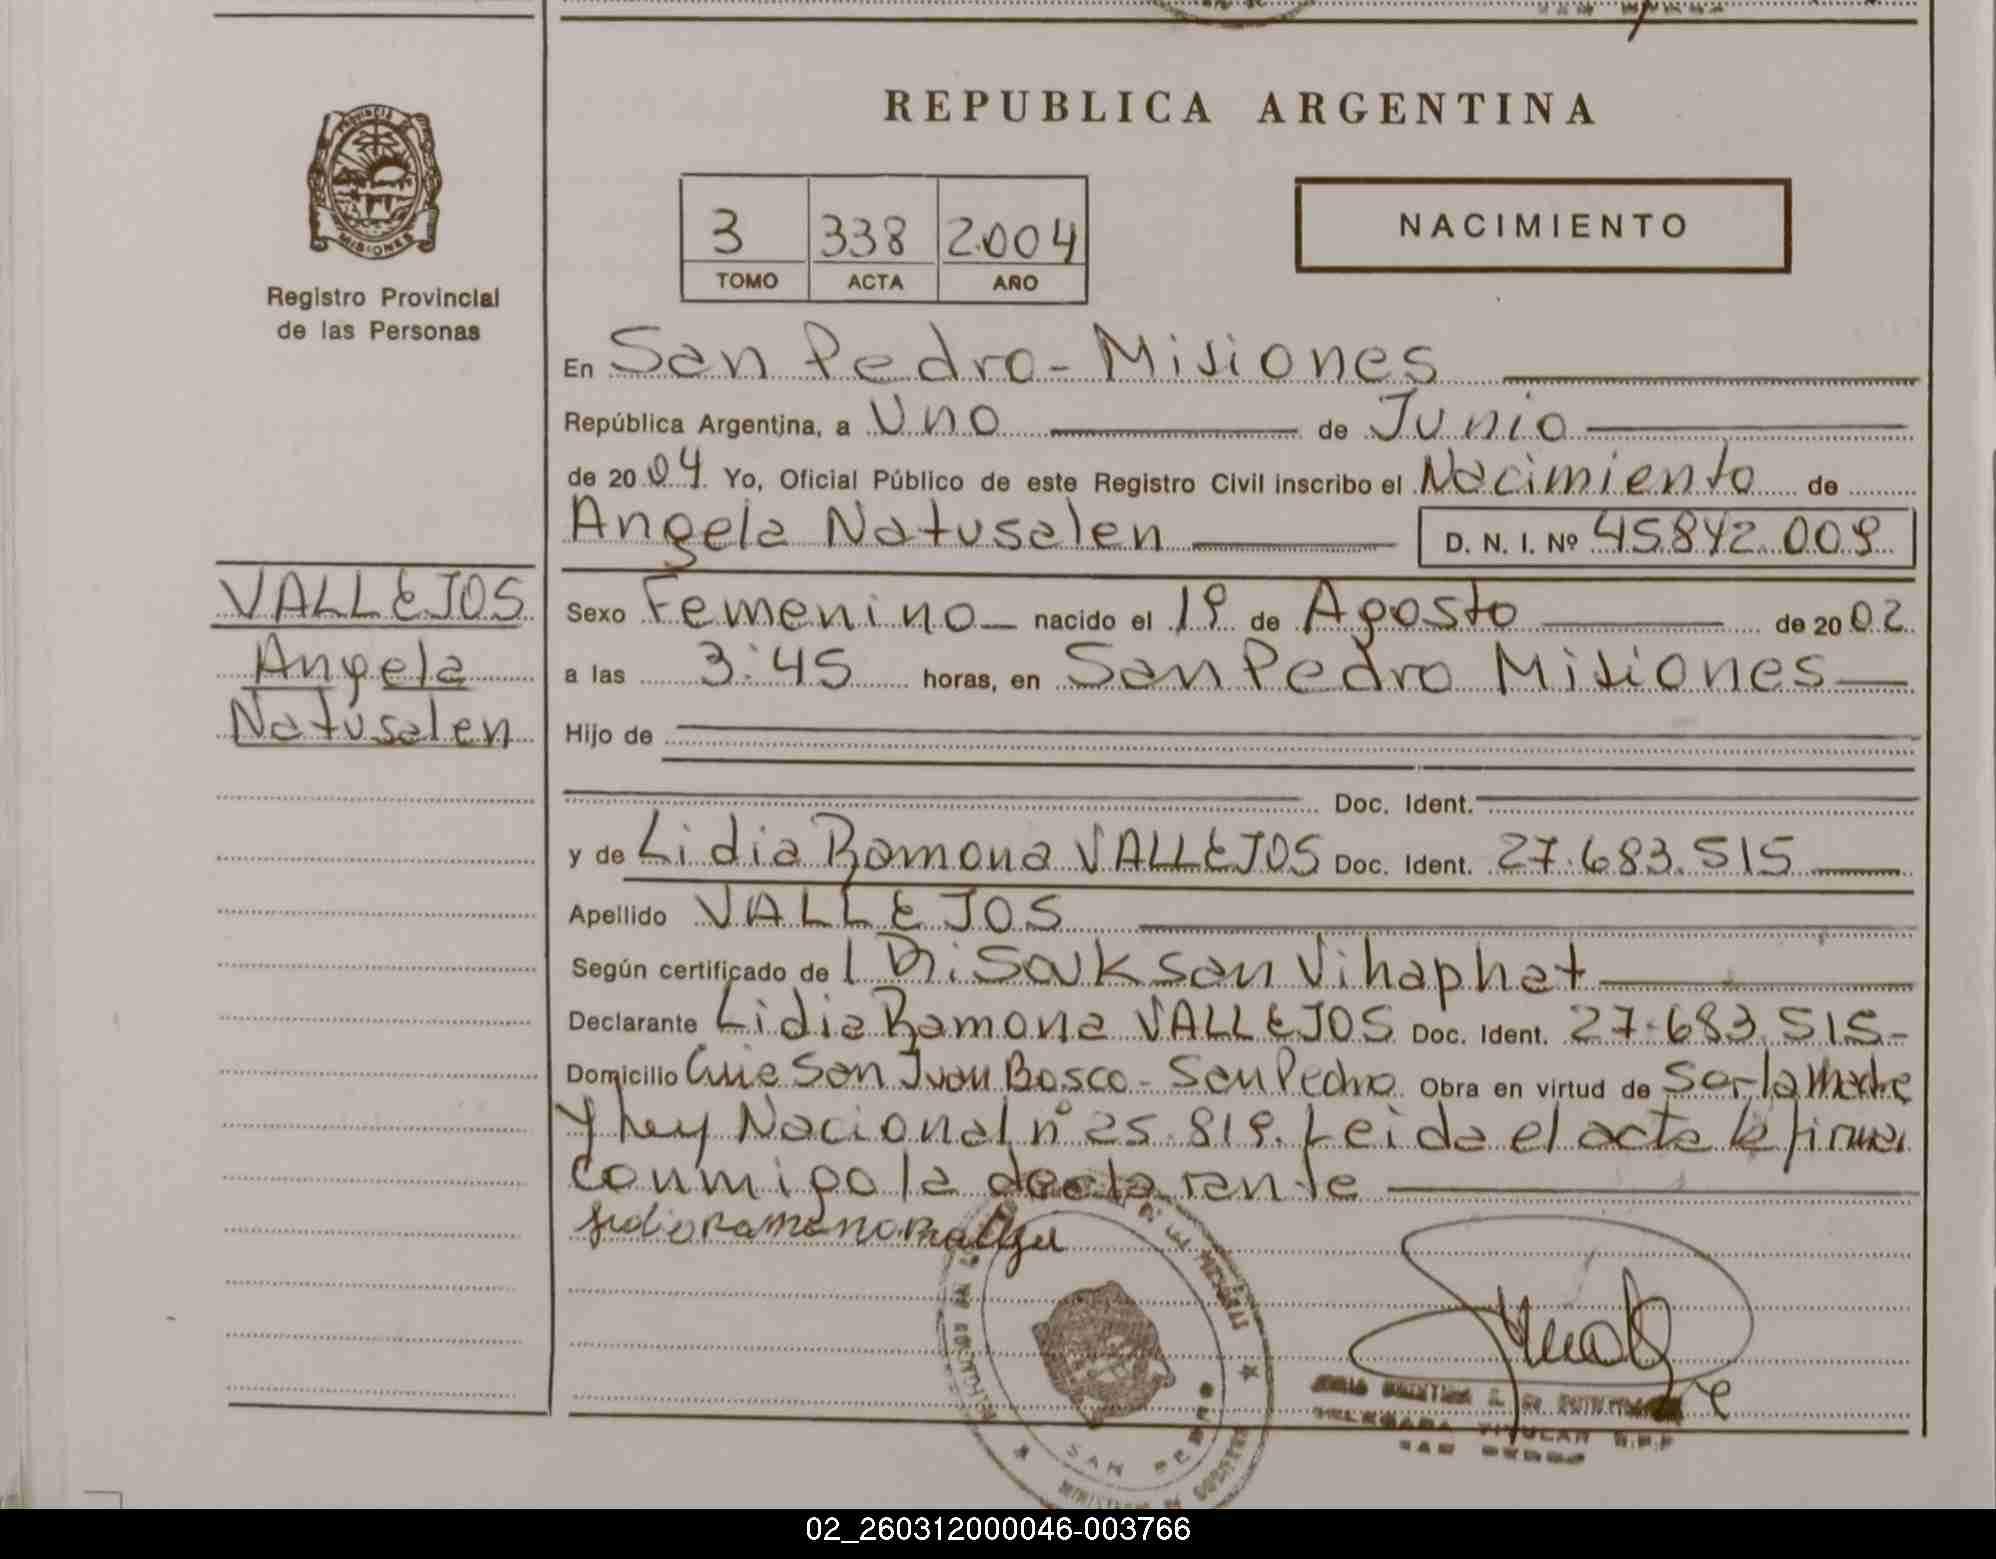 REPUBLICA ARGENTINA
PROVINCIA DE
MISIONES
Registro Provincial
de las Personas
3 338 2.004
TOMO ACTA AÑO
NACIMIENTO
En San Pedro - Misiones
República Argentina, a Uno de Junio
de 20 04 Yo, Oficial Público de este Registro Civil inscribo el Nacimiento de
Angela Natusalen D. N. I. Nº 45.842.009
VALLEJOS
Angela
Natusalen
Sexo Femenino nacido el 19 de Agosto de 20 02
a las 3:45 horas, en San Pedro Misiones
Hijo de
Doc. Ident.
y de Lidia Ramona VALLEJOS Doc. Ident. 27.683.515
Apellido VALLEJOS
Según certificado de Souksan Vihaphat
Declarante Lidia Ramona VALLEJOS Doc. Ident. 27.683.515-
Domicilio San Juan Bosco - San Pedro Obra en virtud de Ser la Madre
y Ley Nacional nº 25.819. Leida el acta la firma
conmigo la declarante
SAN PEDRO
MINISTERIO DE GOBIERNO
TITULAR
SAN PEDRO
02_260312000046-003766